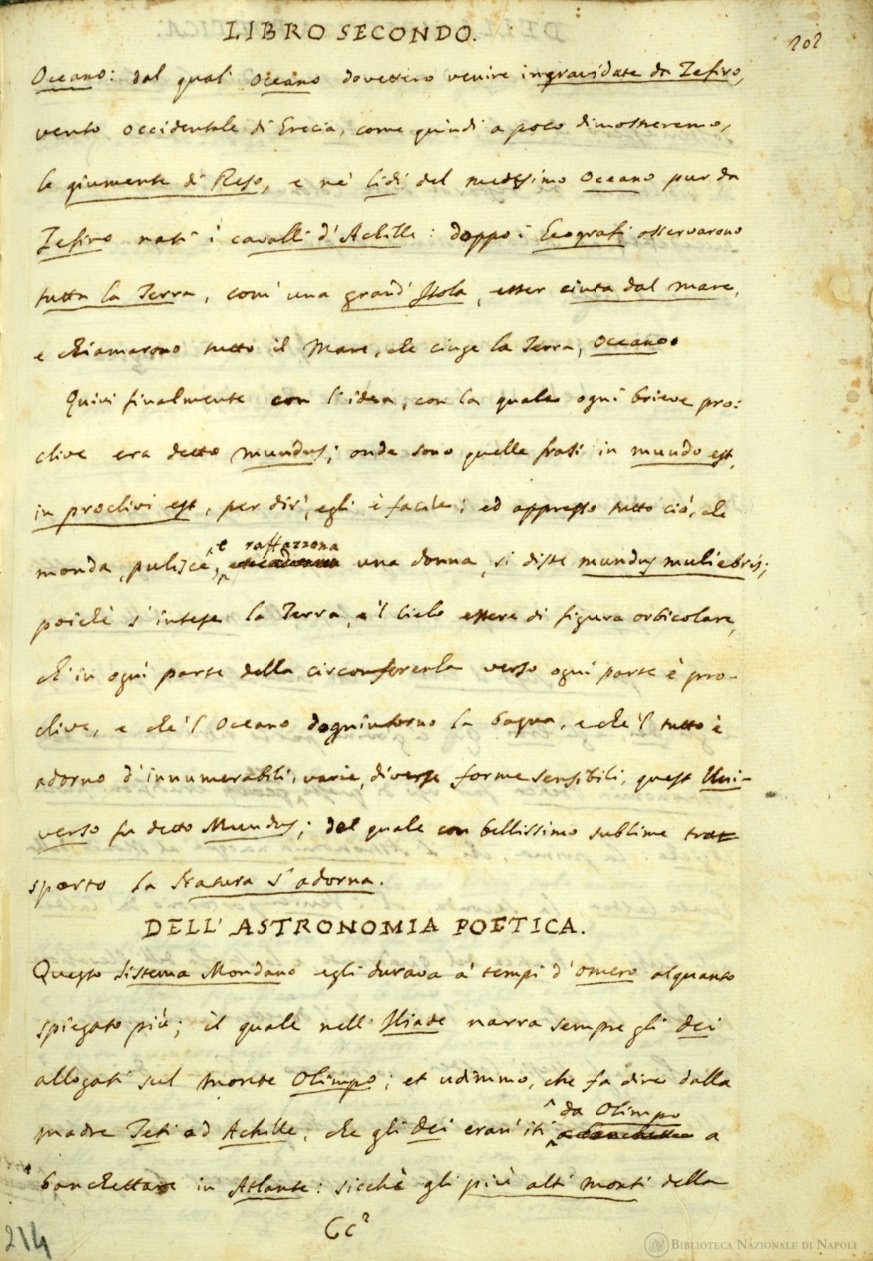 LIBRO SECONDO.
202
Oceano: dal qual' Oceano dovettero venire ingravidate da Zefiro,
vento occidentale di Grecia, come quindi a poco dimostreremo,
le giumente di Reso, e ne' lidi del medesimo Oceano pur da
Zefiro nati i cavalli d'Achille: doppo i Geografi osservarono
tutta la Terra, com' una grand' Isola, esser cinta dal mare,
e chiamarono tutto il Mare, che cinge la Terra, Oceano.
Quivi finalmente con l'idea, con la quale ogni brieve pro:
clive era detto mundus; onde sono quelle frasi in mundo est,
in proclivi est, per dir', egli è facile; ed appresso tutto ciò, che
e raffazzona
monda, pulisce, una donna, si disse mundus muliebris;
poichè s'intese la Terra, e 'l Cielo essere di figura orbicolare,
ch' in ogni parte della circonferenza verso ogni parte è pro-
clive, e che 'l Oceano dognintorno la bagna, e che 'l tutto è
adorno d'innumerabili, varie, diverse forme sensibili, quest' Uni-
verso fu detto Mundus; del quale con bellissimo sublime tra
sporto la Natura s'adorna.
DELL' ASTRONOMIA POETICA.
Questo Sistema Mondano egli durava a' tempi d'Omero alquanto
spiegato più; il quale nell' Iliade narra sempre gli dei
allogati sul monte Olimpo; et udimmo, che fa dire dalla
da Olimpo
madre Teti ad Achille, che gli Dei eran' iti a
banchettare in Atlante: sicchè gli più alti monti della
Cc2
214
BIBLIOTECA NAZIONALE DI NAPOLI